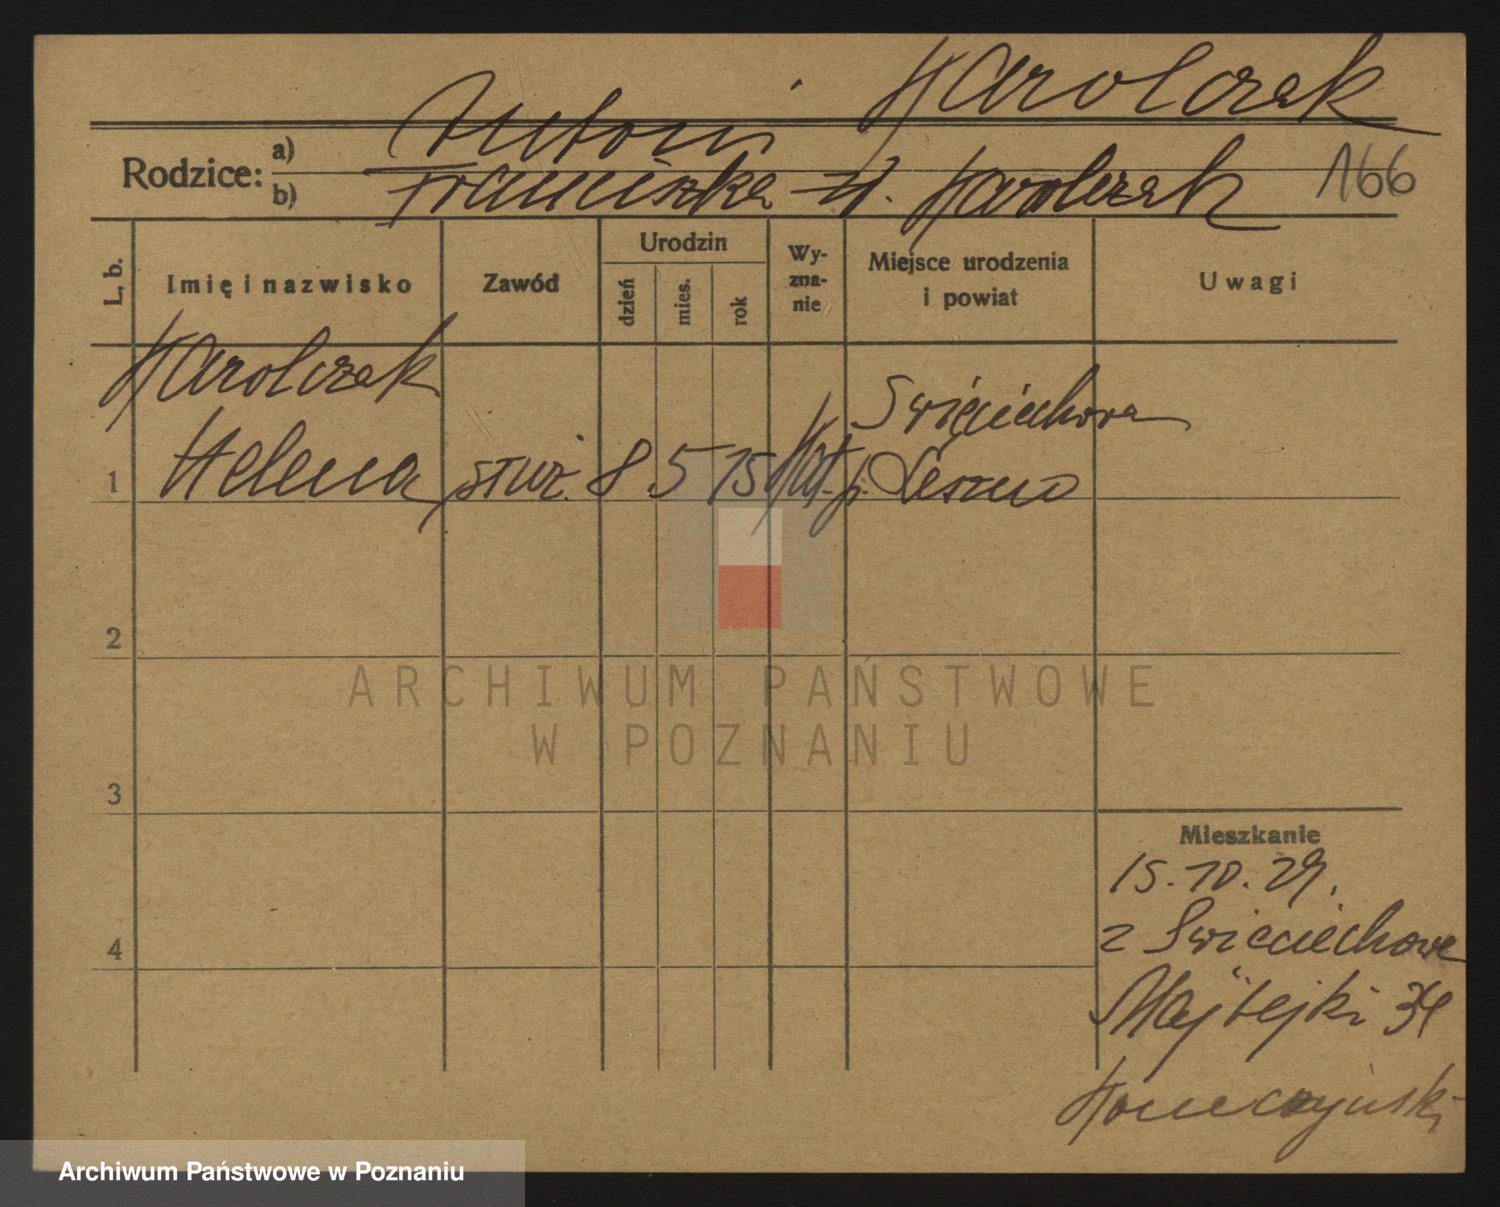 Karolczak
Rodzice: a) Antoni
b) Franciszka z d. Karolczak
166
L. b.
Imię i nazwisko
Zawód
Urodzin
dzień
mies.
rok
Wy-
zna-
nie
Miejsce urodzenia
i powiat
Uwagi
Karolczak
Święciechowa
1 Helena służ. 8 5 15 kat. p. Leszno
2
ARCHIWUM PAŃSTWOWE
W POZNANIU
3
Mieszkanie
15.10.29.
z Święciechowa
4
34
Archiwum Państwowe w Poznaniu